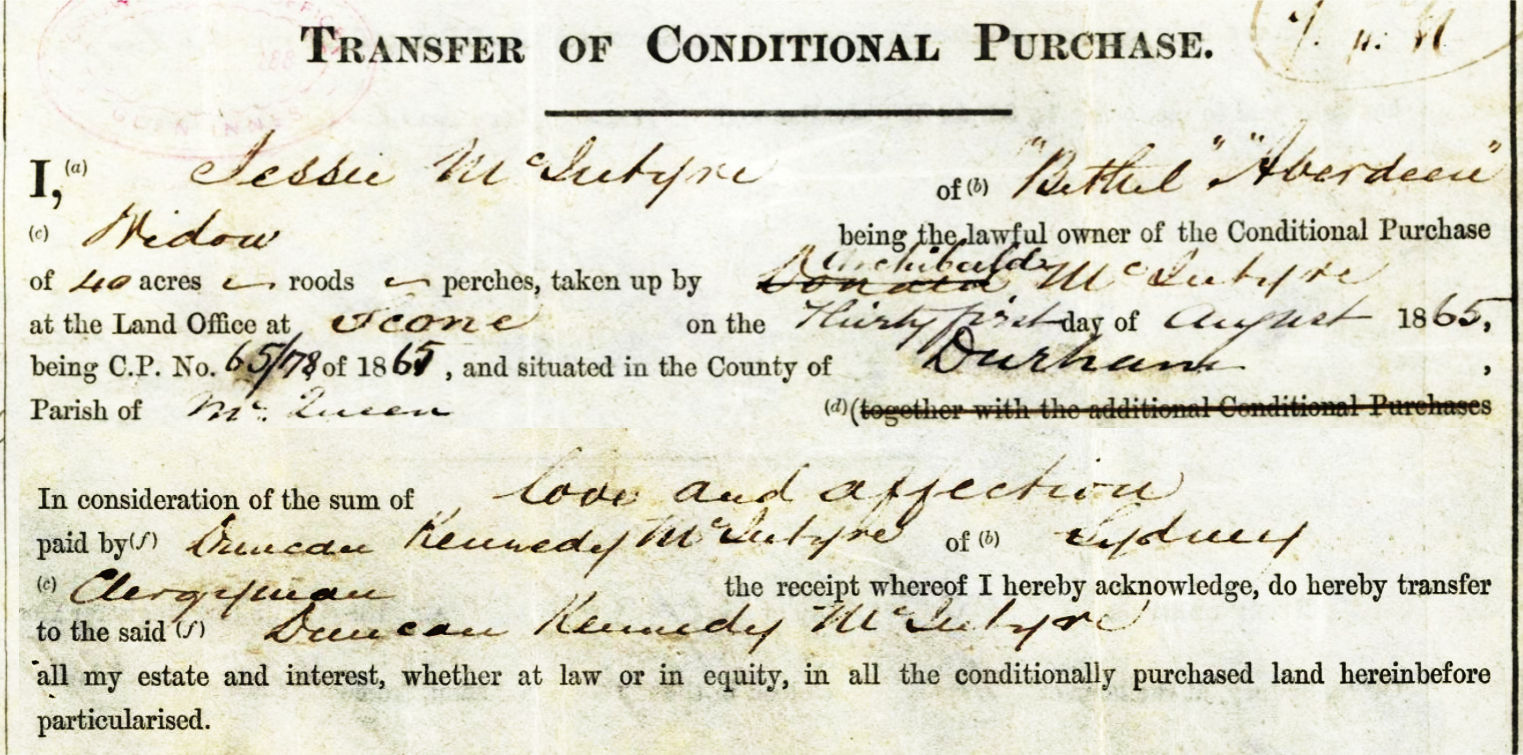 TRANSFER OF CONDITIONAL PURCHASE.
I, (a) Jessie McIntyre of (b) "Bethel" "Aberdeen"
(c) Widow being the lawful owner of the Conditional Purchase
Archibald
of 40 acres — roods — perches, taken up by Donald McIntyre
at the Land Office at Scone on the Thirty first day of August 1865,
being C.P. No. 65/178 of 1865, and situated in the County of Durham,
Parish of McQueen (d) (together with the additional Conditional Purchases
In consideration of the sum of love and affection
paid by (f) Duncan Kennedy McIntyre of (b) Sydney
(c) Clergyman the receipt whereof I hereby acknowledge, do hereby transfer
to the said (f) Duncan Kennedy McIntyre
all my estate and interest, whether at law or in equity, in all the conditionally purchased land hereinbefore
particularised.